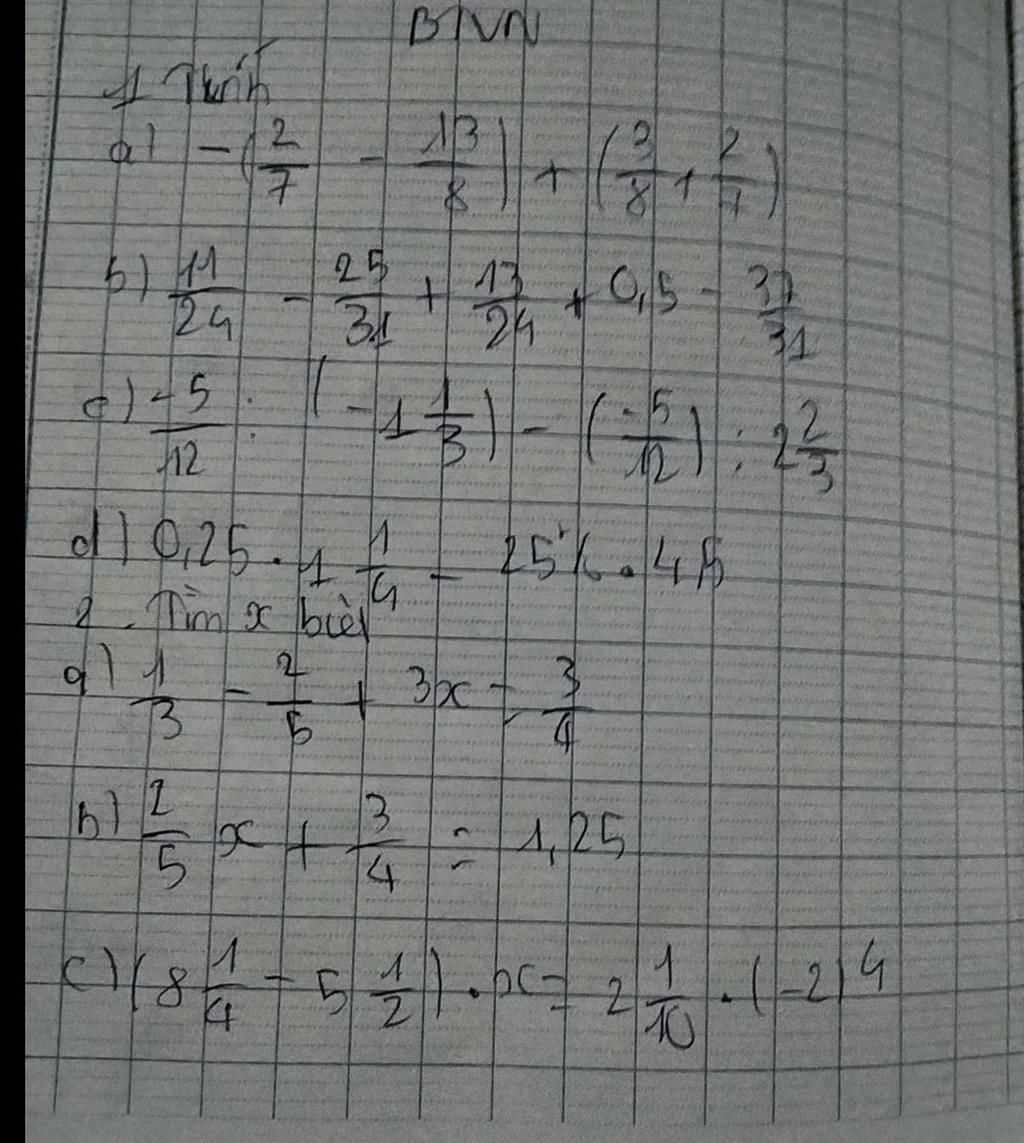 BTVN
1 Tính
a) - (2/7 - 13/8) + (3/8 + 2/7)
b) 11/24 - 25/31 + 13/24 + 0,5 - 37/31
c) -5/12 : (-1 1/3) - (-5/12) : 2 2/3
d) 0,25 . 1 1/4 - 25% . 4,5
2. Tìm x biết
a) 1/3 - 2/5 + 3x = 3/4
b) 2/5 x + 3/4 = 1,25
c) (8 1/4 - 5 1/2) . x = 2 1/10 . (-2)^4